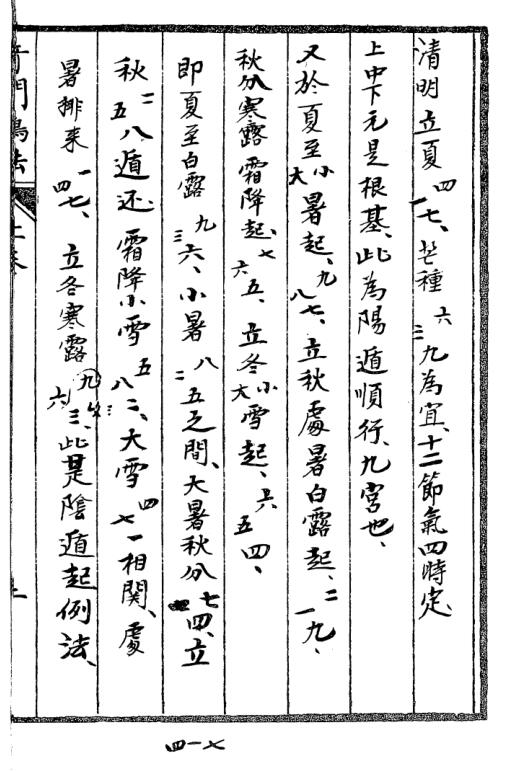 清明立夏四一七、芒種六三九為宜、十二節氣四時定、
上中下元是根基、此為陽遁順行、九宮也、
又於夏至小大暑起、九八七、立秋處暑白露起、二一九、
秋分寒露霜降起、七六五、立冬小大雪起、六五四、
即夏至白露九三六、小暑八二五之間、大暑秋分七一四、立
秋二五八遁还霜降小雪五八二、大雪四七一相関、處
暑排来一四七、立冬寒露六九三、此是陰遁起例法、
上卷
四一七